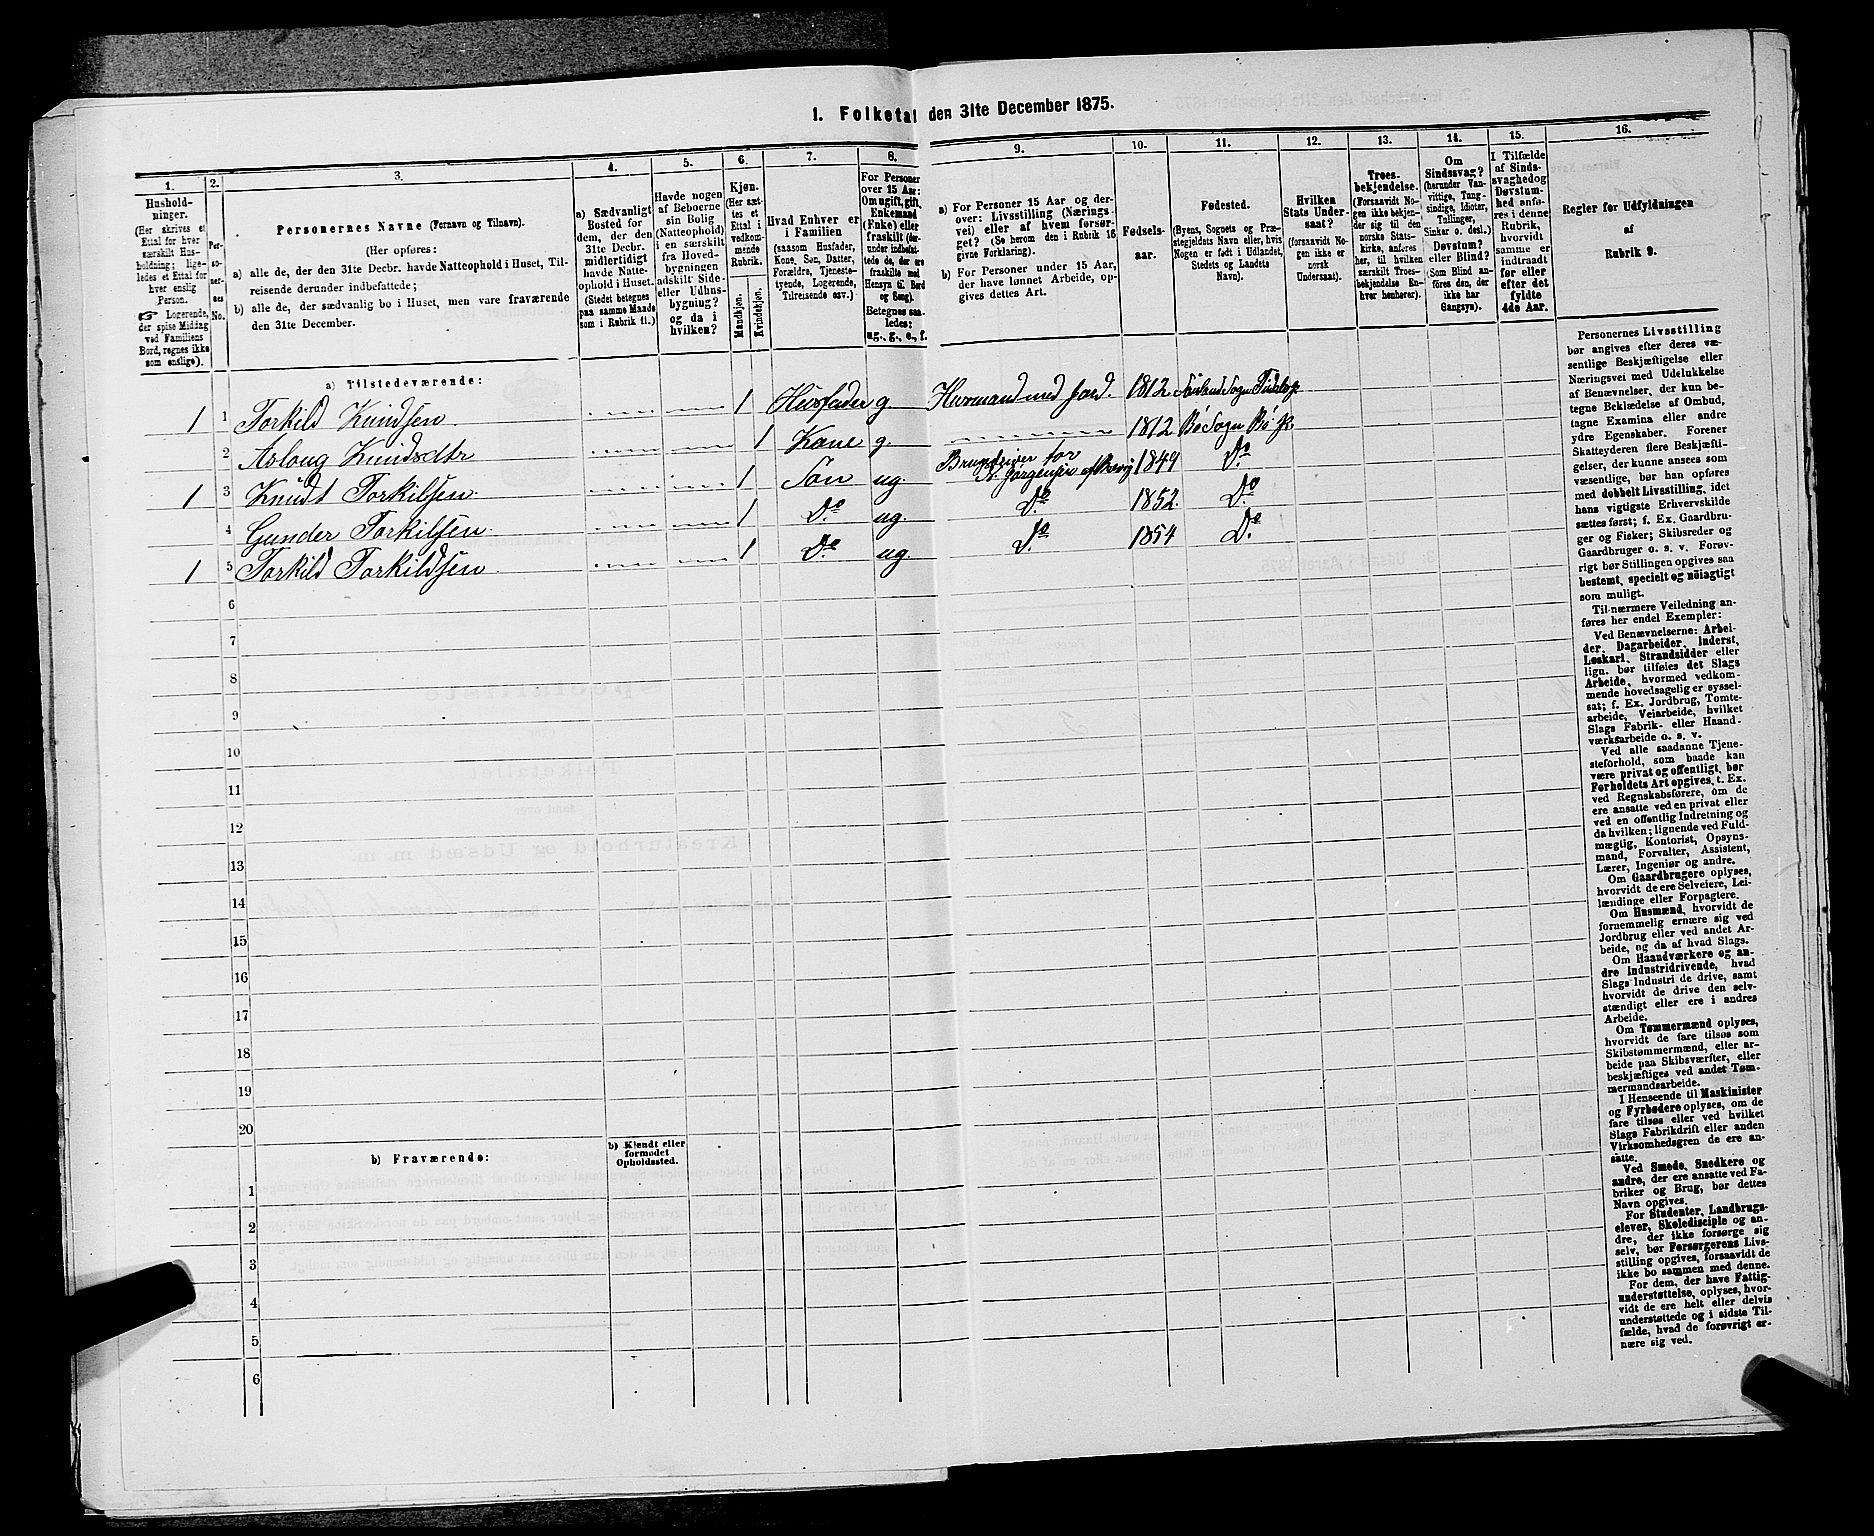 1. Folketal den 31te December 1875.
1.
2.
3.
4.
5.
6.
7.
8.
9.
10.
11.
12.
13.
14.
15.
16.
Hushold-
ninger.
(Her skrives et
Ettal for hver
særskilt Hus-
holdning; lige-
ledes et Ettal for
hver enslig
Person.
☞ Logerende,
der spise Middag
ved Familiens
Bord, regnes ikke
som enslige).
Per-
so-
ner-
nes
No.
Personernes Navne (Fornavn og Tilnavn).
(Her opføres:
a) alle de, der den 31te Decbr. havde Natteophold i Huset, Til-
reisende derunder indbefattede;
b) alle de, der sædvanlig bo i Huset, men vare fraværende
den 31te December.
a) Sædvanligt
Bosted for
dem, der den
31te Decbr.
midlertidigt
havde Natte-
ophold i Huset.
(Stedet betegnes
paa samme Maade
som i Rubrik 11.)
Havde nogen
af Beboerne
sin Bolig
(Natteophold)
i en særskilt
fra Hoved-
bygningen
adskilt Side-
eller Udhus-
bygning?
og da i
hvilken?
Kjøn.
(Her sæt-
tes et
Ettal i
vedkom-
mende
Rubrik.
Mandkjøn.
Kvindekjøn.
Hvad Enhver er
i Familien
(saasom Husfader,
Kone, Søn, Datter,
Forældre, Tjeneste-
tyende, Logerende,
Tilreisende osv.)
For Personer
over 15 Aar:
Om ugift, gift,
Enkemand
(Enke) eller
fraskilt (der-
under indbefat-
tede de, der ere
fraskilte med
Hensyn til Bord
og Seng).
Betegnes saa-
ledes:
ug., g., e., f.
a) For Personer 15 Aar og der-
over: Livsstilling (Nærings-
vei) eller af hvem forsør-
get? (Se herom den i Rubrik 16
givne Forklaring).
b) For Personer under 15 Aar,
der have lønnet Arbeide, op-
gives dettes Art.
Fødsels-
aar.
Fødested.
(Byens, Sognets og Præ-
stegjeldets Navn eller, hvis
Nogen er født i Udlandet,
Stedets og Landets
Navn).
Hvilken
Stats Under-
saat?
(forsaavidt No-
gen ikke er
norsk
Undersaat).
Troes-
bekjendelse.
(Forsaavidt No-
gen ikke bekjen-
der sig til den
norske Stats-
kirke, anføres
her, til hvilken
særskilt Troes-
bekjendelse En-
hver henhører).
Om
Sindssvag?
(herunder Van-
vittige, Tung-
sindige, Idioter,
Tullinger,
Sinker o. desl.)
Døvstum?
eller Blind?
(Som Blind an-
føres den, der
ikke har
Gangsyn).
I Tilfælde
af Sinds-
svaghed og
Døvstum-
hed anfø-
res i denne
Rubrik,
hvorvidt
samme er
indtraadt
før eller
efter det
fyldte
4de Aar.
Regler for Udfyldningen
af
Rubrik 9.
a) Tilstedeværende:
1 1 Torkild Knudsen 1 Husfader g. Husmand med Jord. 1812
2 Asloug Knudsdtr 1 Kone g. 1812 Bø Sogn Bø Pr.
1 3 Knudt Torkilsen 1 Søn ug. 1849 Do
4 Gunder Torkilsen 1 Do ug. Do 1852 Do
1 5 Torkild Torkildsen 1 Do ug. Do 1854 Do
6
7
8
9
10
11
12
13
14
15
16
17
18
19
20
b) Fraværende:
b) Kjendt eller
formodet
Opholdssted.
1
2
3
4
5
6
Personernes Livsstilling
bør angives efter deres væ-
sentlige Beskjæftigelse eller
Næringsvei med Udelukkelse
af Benævnelser, der kun be-
tegne Beklædelse af Ombud,
tagne Examina eller andre
ydre Egenskaber. Forener
Skatteyderen flere Beskjæfti-
gelser, der kunne ansees som
væsentlige, bør han opføres
med dobbelt Livsstilling, idet
hans vigtigste Erhvervskilde
sættes først; f. Ex. Gaardbru-
ger og Fisker; Skibsreder og
Gaardbruger o. s. v. Forøv-
rigt bør Stillingen opgives saa
bestemt, specielt og nöiagtigt
som muligt.
Til nærmere Veiledning an-
føres her endel Exempler:
Ved Benævnelserne: Arbei-
der, Dagarbeider, Inderst,
Løskarl, Strandsidder eller
lign. bør tilføies det Slags
Arbeide, hvormed vedkom-
mende hovedsagelig er syssel-
sat; f. Ex. Jordbrug, Tomte-
arbeide, Veiarbeide, hvilket
Slags Fabrik- eller Haand-
værksarbeide o. s. v.
Ved alle saadanne Tjene-
steforhold, som baade kan
være privat og offentligt, bør
Forholdets Art opgives, t. Ex.
ved Regnskabsførere, om de
ere ansatte ved en privat eller
ved en offentlig Indretning og
da hvilken; lignende ved Fuld-
mægtig, Kontorist, Opsyns-
mand, Forvalter, Assistent,
Lærer, Ingeniør og andre.
Om Gaardbrugere oplyses,
hvorvidt de ere Selveiere, Lei-
lændinge eller Forpagtere.
Om Husmænd, hvorvidt de
fornemmelig ernære sig ved
Jordbrug eller ved andet Ar-
beide, og da af hvad Slags.
Om Haandværkere og an-
dre Industridrivende, hvad
Slags Industri de drive, samt
hvorvidt de drive den selv-
stændigt eller ere i andres
Arbeide.
Om Tømmermænd oplyses,
hvorvidt de fare tilsøs som
Skibstømmermænd, eller ar-
beide paa Skibsværfter, eller
beskjæftiges ved andet Tøm-
mermandsarbeide.
I Henseende til Maskinister
og Fyrbødere oplyses, om de
fare tilsøs eller ved hvilket
Slags Fabrikdrift eller anden
Virksomhedsgren de ere an-
satte.
Ved Smede, Snedkere og
andre, der ere ansatte ved Fa-
briker og Brug, bør dettes
Navn opgives.
For Studenter, Landbrugs-
elever, Skoledisciple og an-
dre, der ikke forsørge sig
selv, bør Forsørgerens Livs-
stilling opgives, forsaavidt de
ikke bo sammen med denne.
For dem, der have Fattig-
understøttelse, oplyses, hvor-
vidt de ere helt eller delvis
understøttede og i sidste Til-
fælde, hvad de forøvrigt er-
nære sig ved.